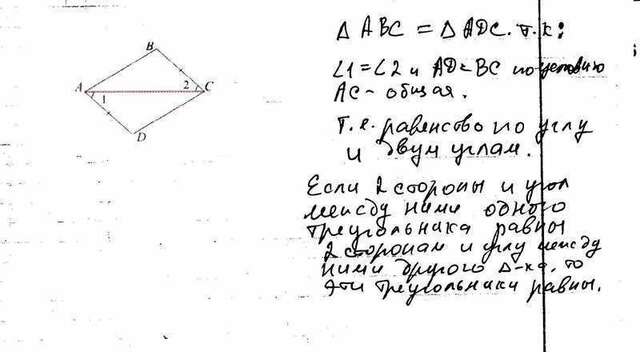 B
A
1
2
C
D
Δ ABC = Δ ADC. т.к:
∠1=∠2 и AD=BC по условию
AC - общая.
Т.е. равенство по углу
и двум углам.
Если 2 стороны и угол
между ними одного
треугольника равны
2 сторонам и углу между
ними другого Δ-ка, то
эти треугольники равны.